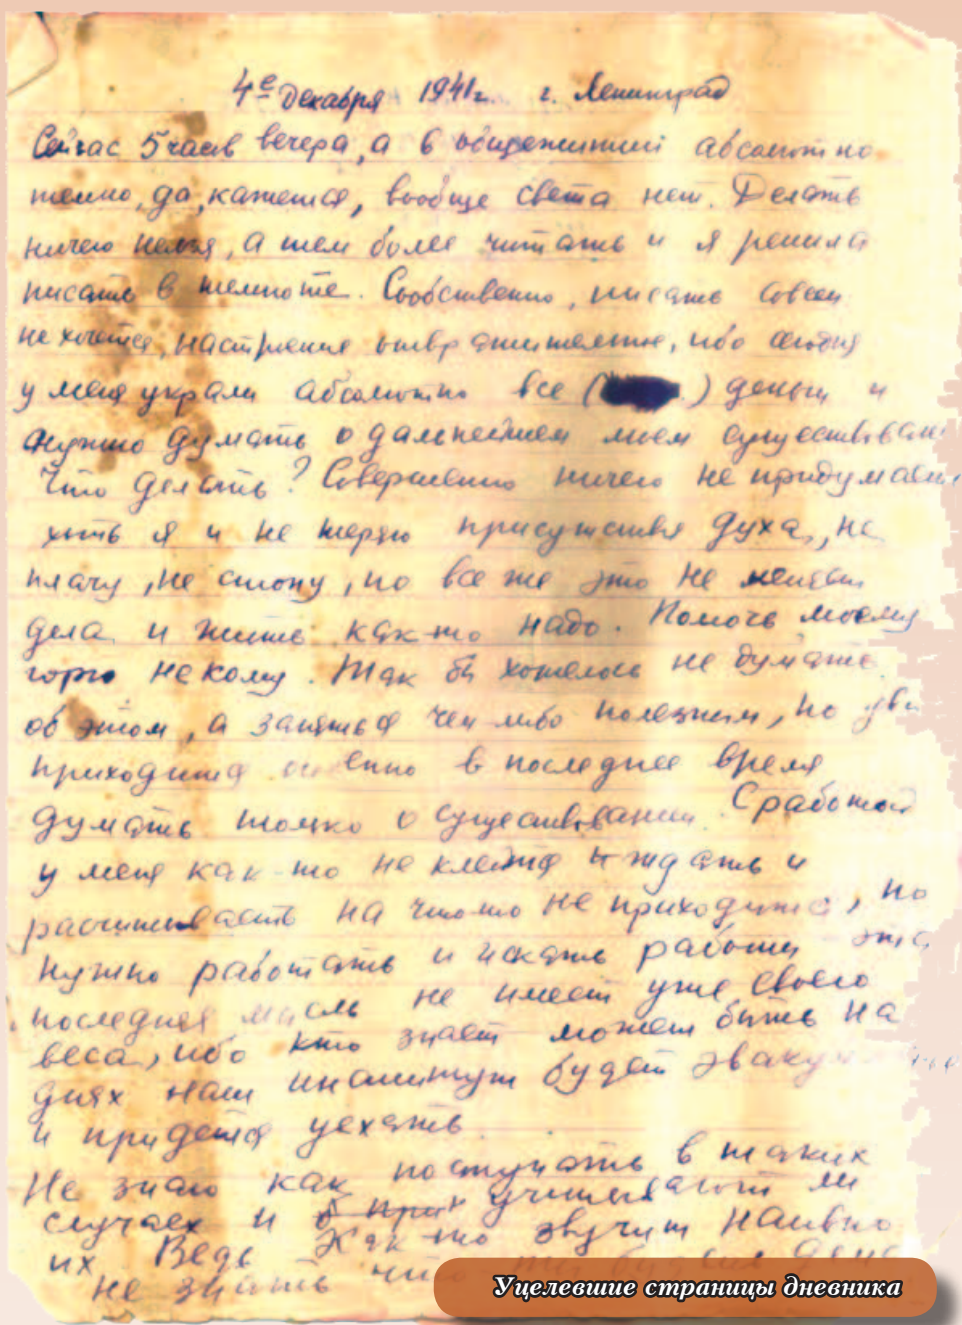 4е Декабря 1941 г. г. Ленинград
Сейчас 5 часов вечера, а в общежитии абсолютно
темно, да, кажется, вообще света нет. Делать
ничего нельзя, а тем более читать и я решила
писать в темноте. Собственно, писать совсем
не хочется, настроение отвратительное, ибо сегодня
у меня украли абсолютно все ( ) деньги и
нужно думать о дальнейшем моем существовании
Что делать? Совершенно ничего не придумаешь
хоть я и не теряю присутствия духа, не
плачу, не стону, но все же это не меняет
дела и жить как-то надо. Помочь моему
горю некому. Так бы хотелось не думать
об этом, а заняться чем-либо полезным, но увы
приходится в последнее время
думать только о существовании. С работой
у меня как-то не клеится и ждать и
рассчитывать на что-то не приходится, но
нужно работать и искать работы эта
последняя мысль не имеет уже своего
веса, ибо кто знает может быть на
днях наш институт будет
и придется уехать.
Не знаю как поступать в таких
случаях и учитывают ли
их. Ведь как-то звучит наивно
не знать что
Уцелевшие страницы дневника